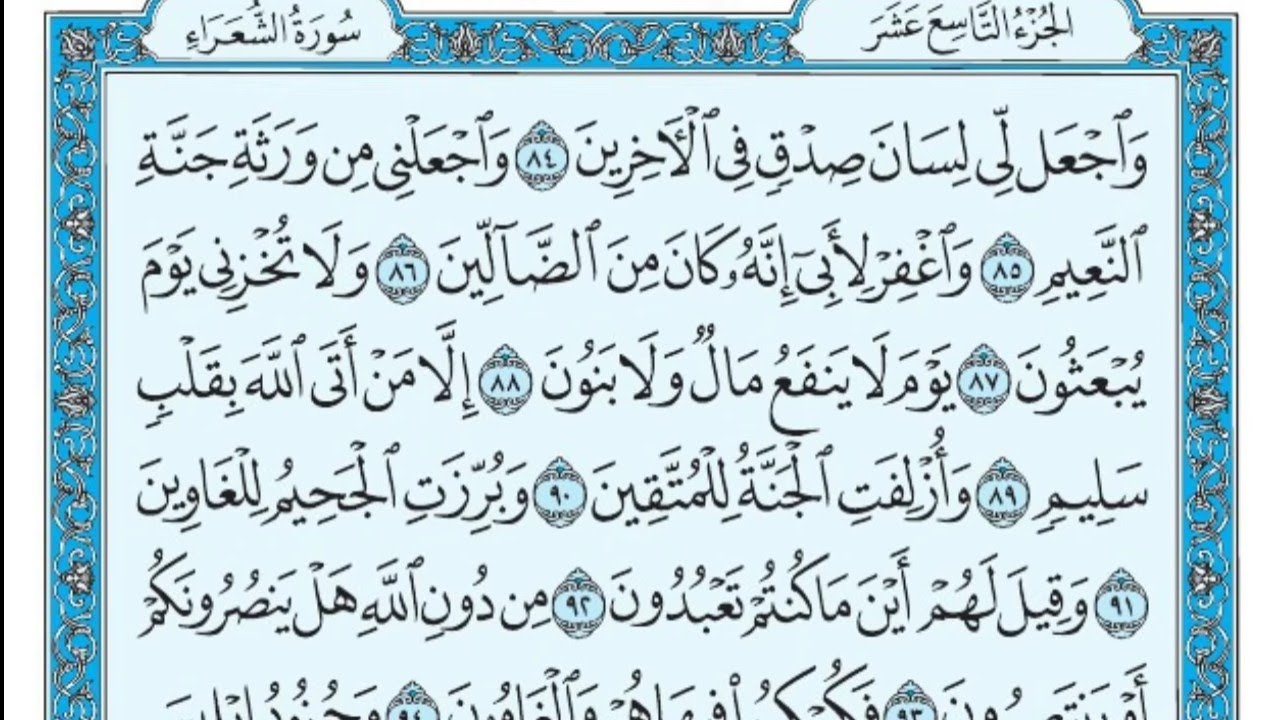 الجُزْءُ التَّاسِعَ عَشَرَ
سُورَةُ الشُّعَرَاءِ
وَٱجۡعَل لِّي لِسَانَ صِدۡقٖ فِي ٱلۡأٓخِرِينَ ٨٤ وَٱجۡعَلۡنِي مِن وَرَثَةِ جَنَّةِ
ٱلنَّعِيمِ ٨٥ وَٱغۡفِرۡ لِأَبِيٓ إِنَّهُۥ كَانَ مِنَ ٱلضَّآلِّينَ ٨٦ وَلَا تُخۡزِنِي يَوۡمَ
يُبۡعَثُونَ ٨٧ يَوۡمَ لَا يَنفَعُ مَالٞ وَلَا بَنُونَ ٨٨ إِلَّا مَنۡ أَتَى ٱللَّهَ بِقَلۡبٖ
سَلِيمٖ ٨٩ وَأُزۡلِفَتِ ٱلۡجَنَّةُ لِلۡمُتَّقِينَ ٩٠ وَبُرِّزَتِ ٱلۡجَحِيمُ لِلۡغَاوِينَ
٩١ وَقِيلَ لَهُمۡ أَيۡنَ مَا كُنتُمۡ تَعۡبُدُونَ ٩٢ مِن دُونِ ٱللَّهِ هَلۡ يَنصُرُونَكُمۡ
أَوۡ يَنتَصِرُونَ ٩٣ فَكُبۡكِبُواْ فِيهَا هُمۡ وَٱلۡغَاوُۥنَ ٩٤ وَجُنُودُ إِبۡلِيسَ